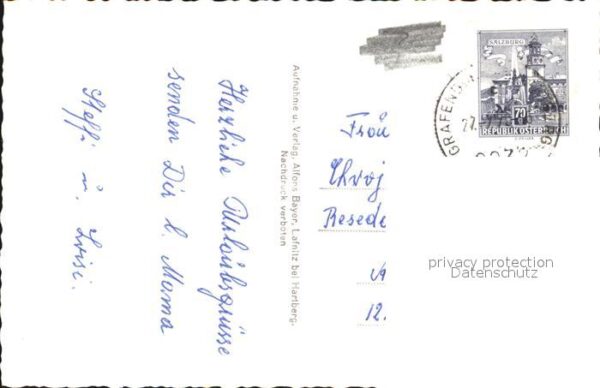 Herzliche Urlaubsgrüsse
senden Dir l. Mama
Steffi u. Luisi.
Aufnahme u. Verlag: Alfons Bayer, Lafnitz bei Hartberg.
Nachdruck verboten
Frau
Resede
12.
SALZBURG
70
REPUBLIK ÖSTERREICH
GRAFEN
27.
privacy protection
Datenschutz